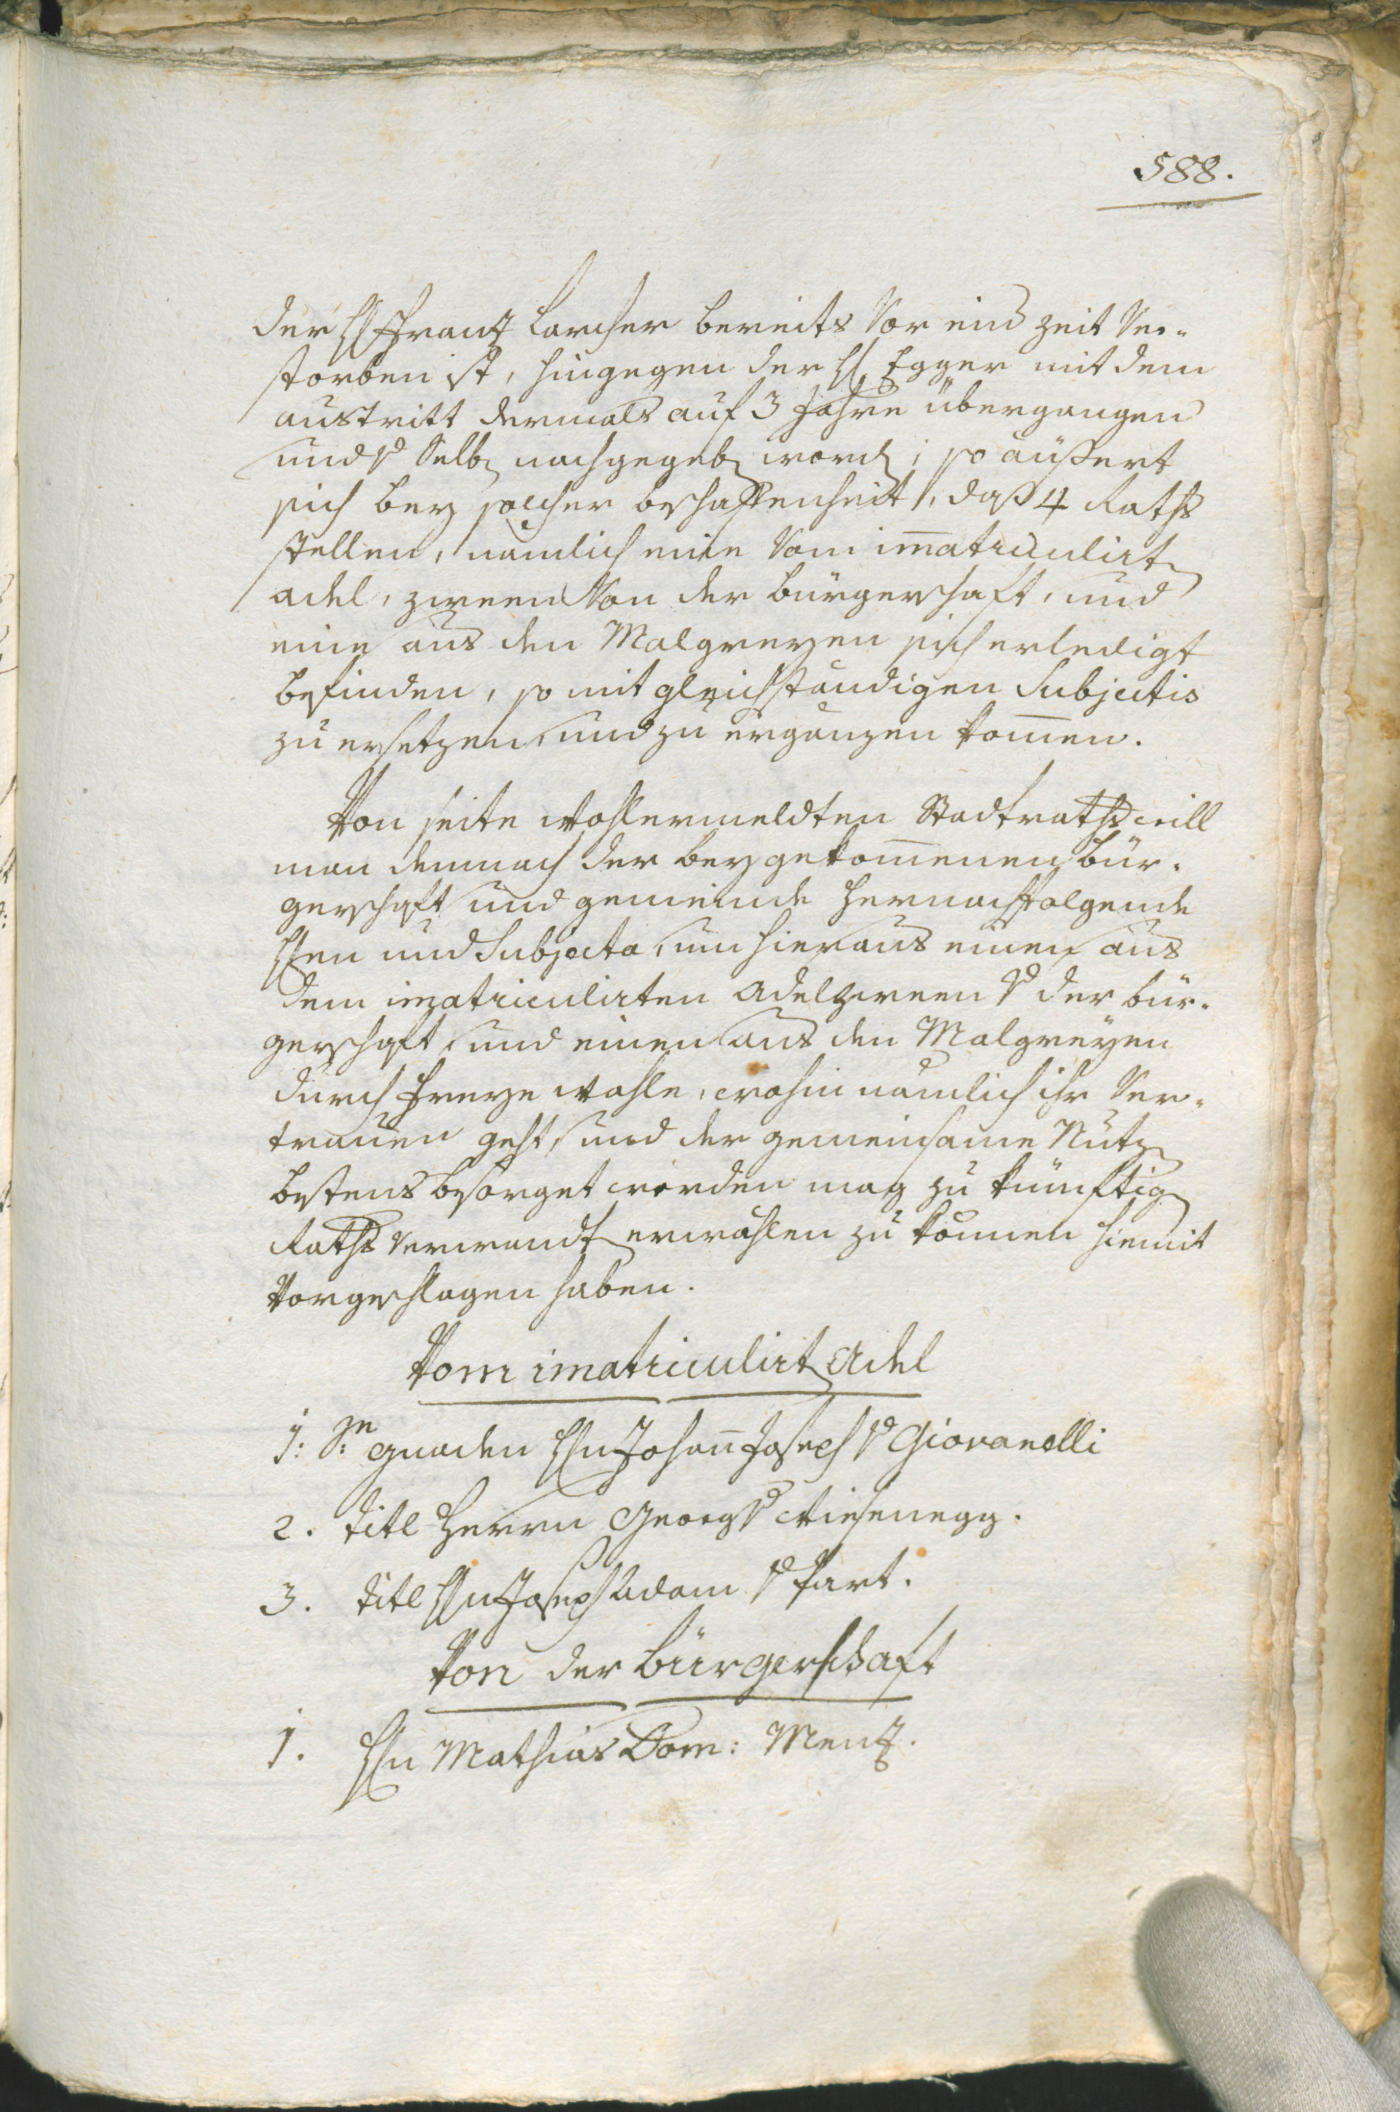 588.
der H Frantz Larcher bereits Vor eind Zeit Ver-
storben ist, hingegen der H Egger mit dem
austritt dermals auf 3 Jahre übergangen
und v Selb nachgegeb word; so äußert
sich bey solcher beschaffenheit, daß 4 Raths
stellen, nämlich eine Vom im̄atriculirt
adel, zween Von der bürgerschaft, und
eine aus den Malgreyen sich erledigt
befinden, so mit gleichständigen Subjectis
zu ersetzen, und zu ergänzen kom̄en.
Von seite Wohlermeldten Stadtraths will
man demnach der beygekom̄enen bür-
gerschaft und gemeinde hernachfolgende
HHen und Subjecta, um hieraus einen aus
dem im̄atriculirten Adel zween v der bür-
gerschaft, und einen aus den Malgreyen
durch freye Wahle, wohin nämlich ihr Ver-
trauen geht, und der gemeinsame Nutz
bestens besorget werden mag zu künftig
Raths verwandt erwählen zu können hiemit
Vorgeschlagen haben.
Vom imatriculirt Adel
1: Sr gnaden HHn Johan̄ Joseph v Giovanelli
2. Titl Herrn Georg v Wiesenegg.
3. Titl HHn Joseph Adam v Part.
Von der Bürgerschaft
1. HHn Mathias Dom: Mentz.